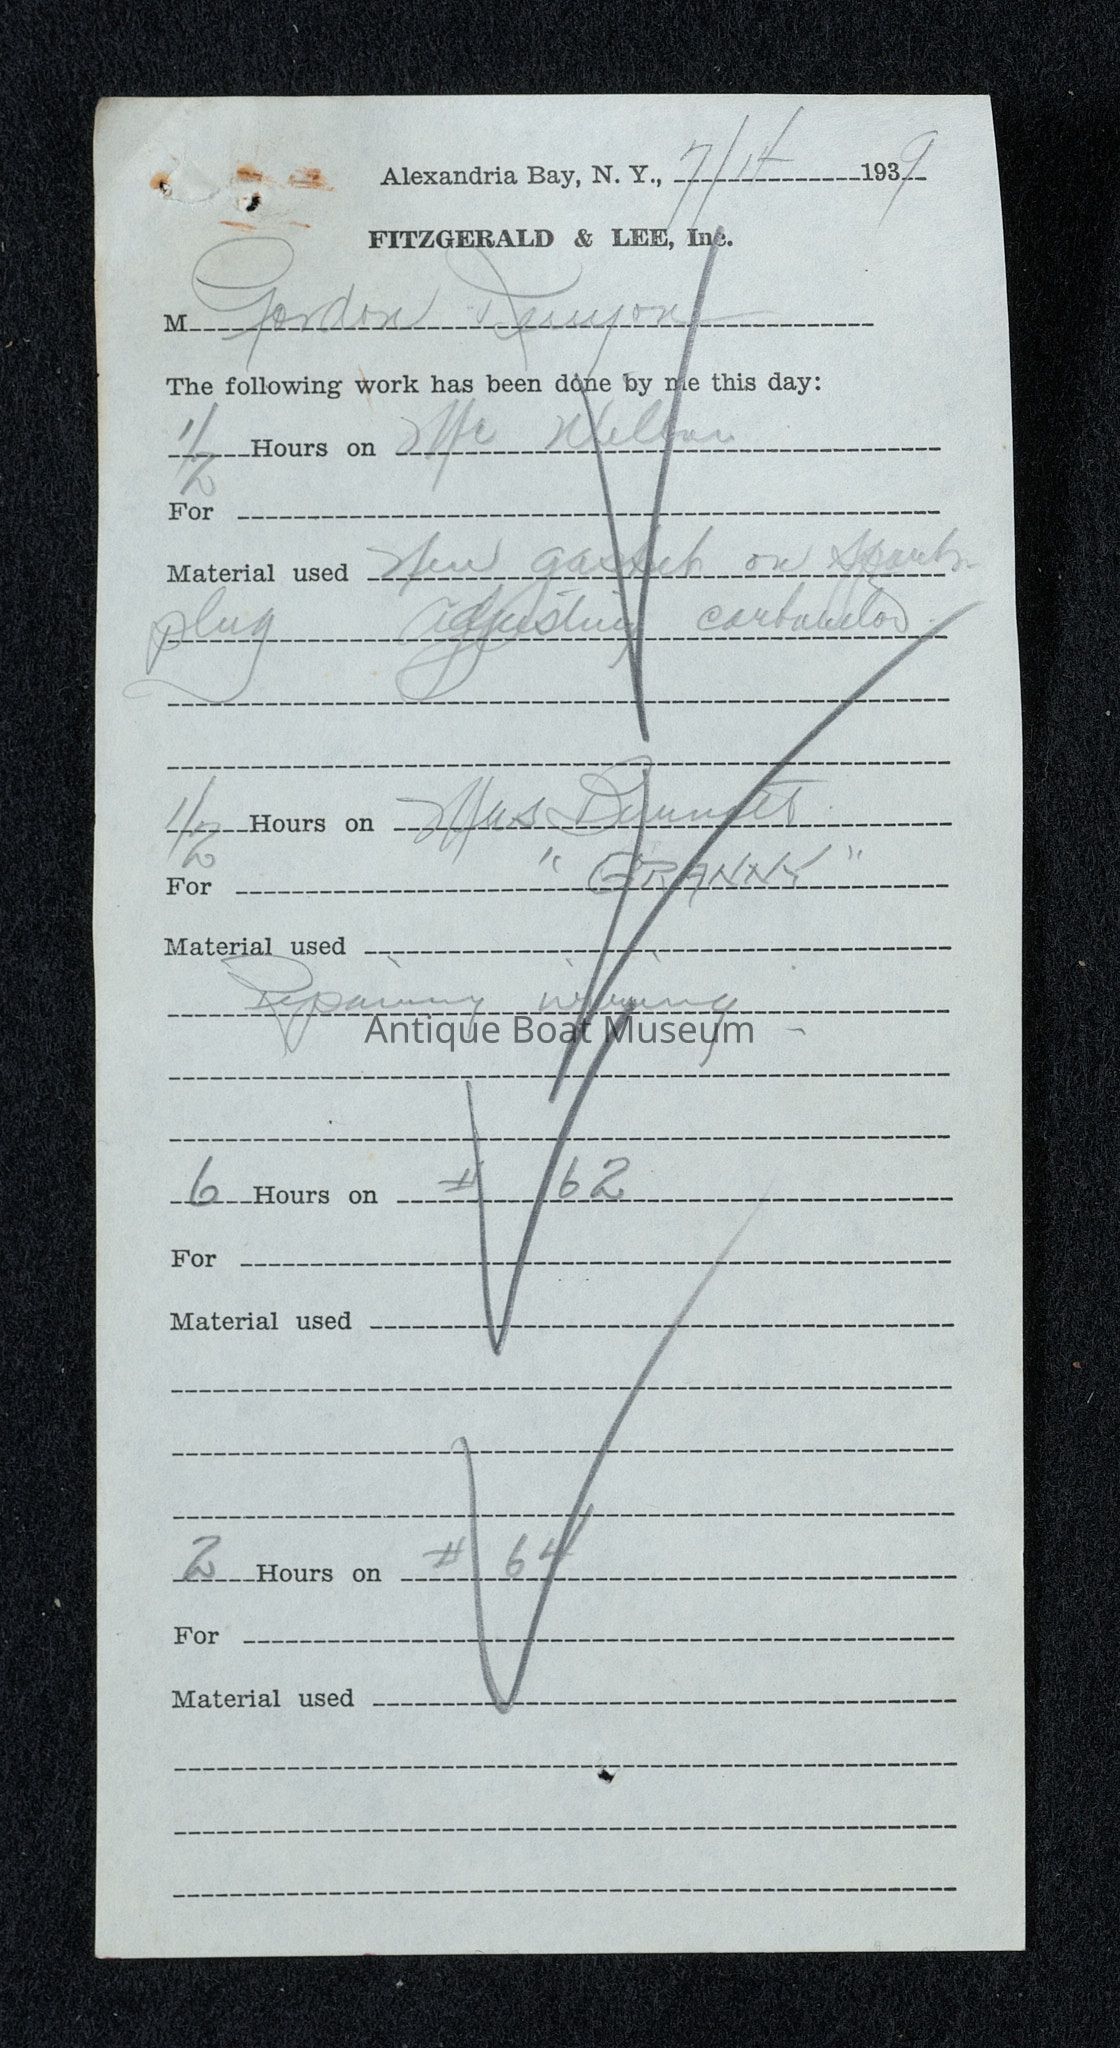 Alexandria Bay, N. Y., 7/14 1939
FITZGERALD & LEE, Inc.
M Gordon Runyon
The following work has been done by me this day:
1/2 Hours on Mc
For
Material used New gaskets on spark
plug adjusting
1/2 Hours on Mrs Bennett
For "GRANNY"
Material used
Repairing wiring
Antique Boat Museum
6 Hours on # 62
For
Material used
2 Hours on # 64
For
Material used